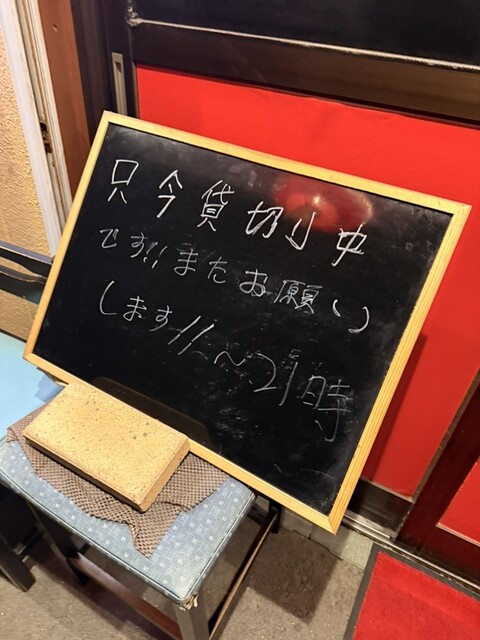 只今貸切り中
です!!またお願い
します!!~21時